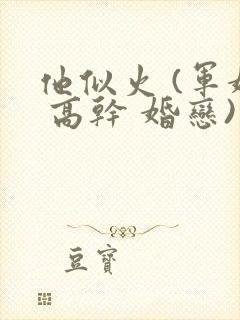 他似火(軍婚
高幹 婚戀)
豆寶